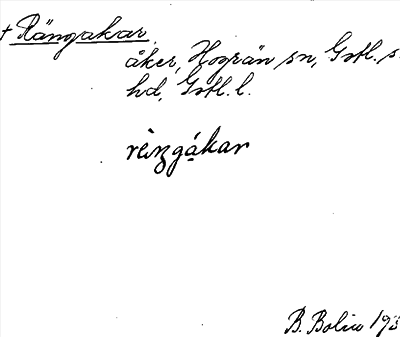 † Rängakar
åker, Hogrän sn, Gotl. s.
hd, Gotl. l.
B. Bolin 193